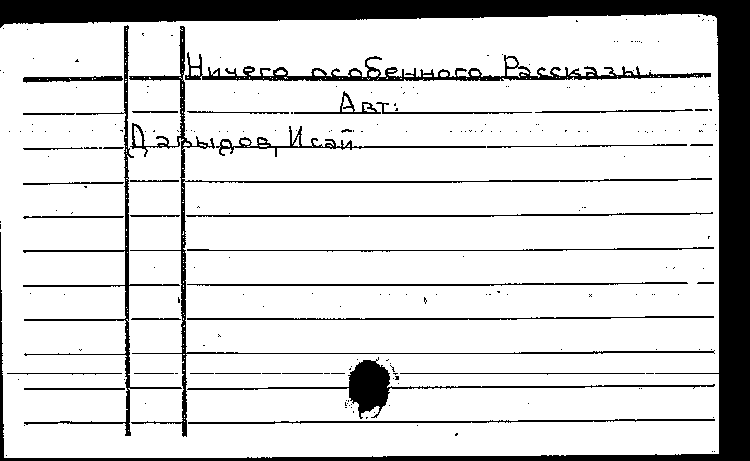 Ничего особенного. Рассказы.
Авт:
Давыдов, Исай.